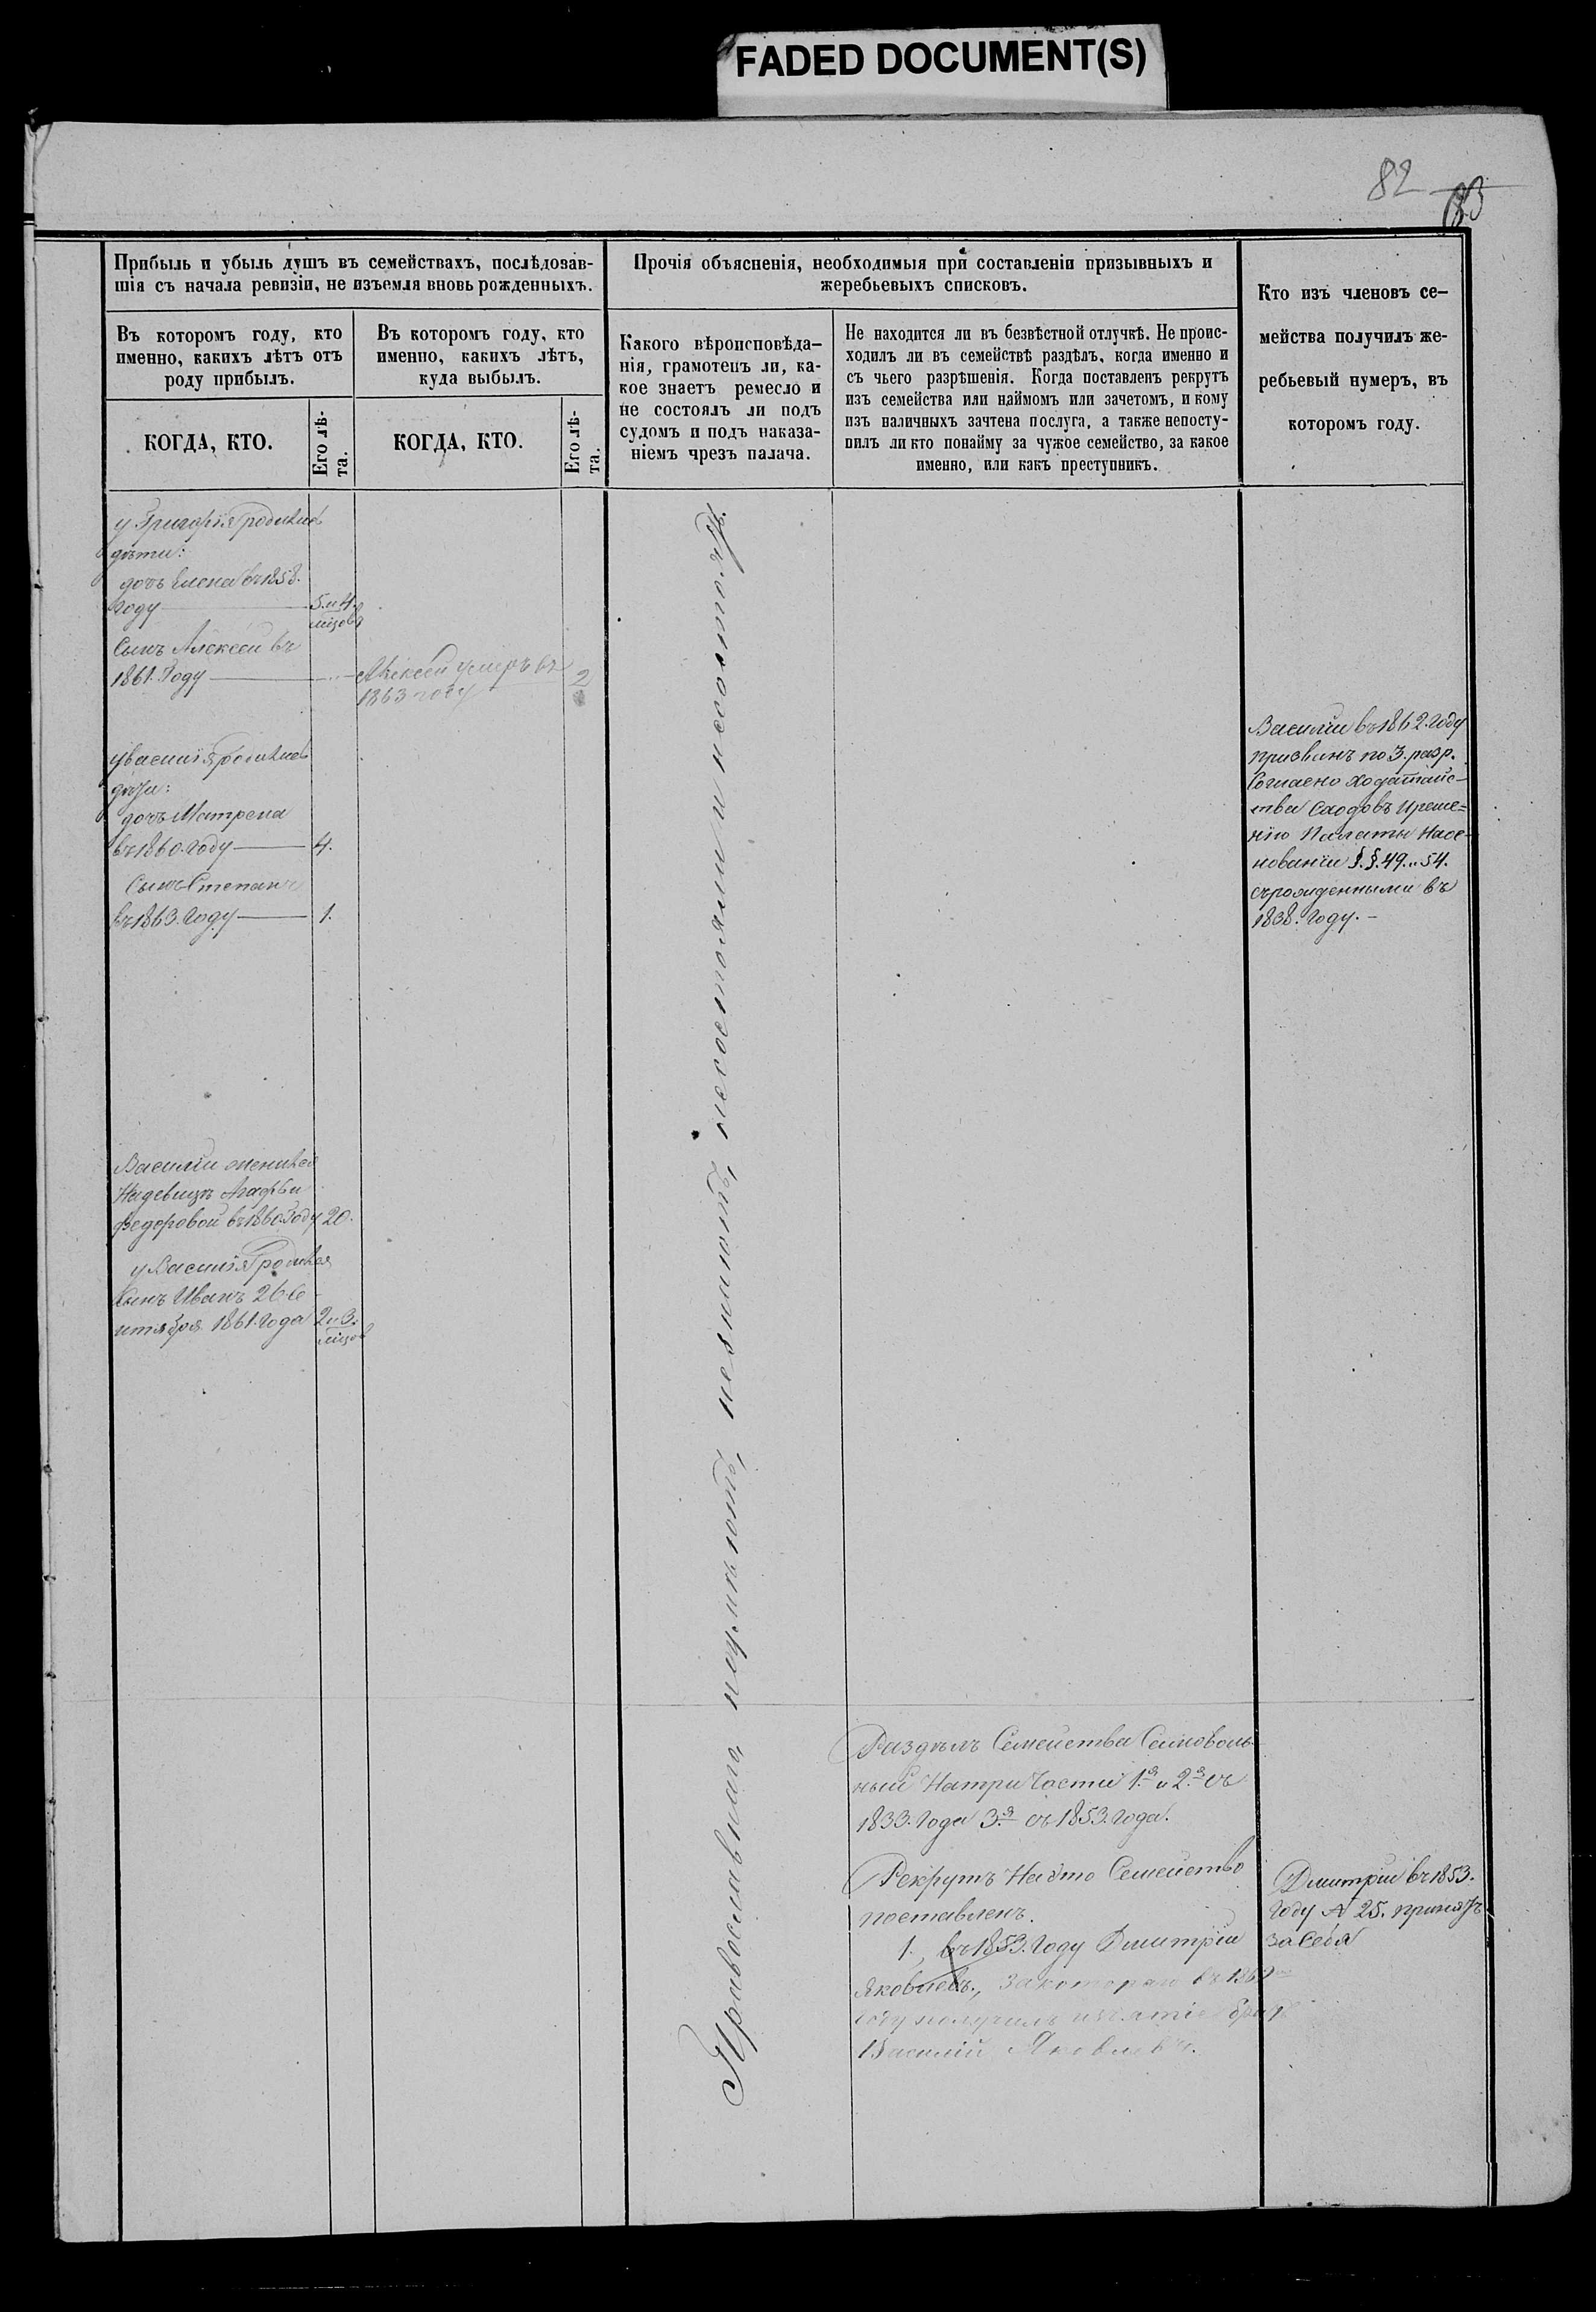 FADED DOCUMENT(S)
82
83
Прибыль и убыль душъ въ семействахъ, послѣдовав-
шія съ начала ревизіи, не изъемля вновь рожденныхъ.
Въ которомъ году, кто
именно, какихъ лѣтъ отъ
роду прибылъ.
КОГДА, КТО.
Его лѣ-
та.
Въ которомъ году, кто
именно, какихъ лѣтъ,
куда выбылъ.
КОГДА, КТО.
Его лѣ-
та.
Прочія объясненія, необходимыя при составленіи призывныхъ и
жеребьевыхъ списковъ.
Какого вѣроисповѣда-
нія, грамотенъ ли, ка-
кое знаетъ ремесло и
не состоялъ ли подъ
судомъ и подъ наказа-
ніемъ чрезъ палача.
Не находится ли въ безвѣстной отлучкѣ. Не проис-
ходилъ ли въ семействѣ раздѣлъ, когда именно и
съ чьего разрѣшенія. Когда поставленъ рекрутъ
изъ семейства или наймомъ или зачетомъ, и кому
изъ наличныхъ зачтена послуга, а также непосту-
пилъ ли кто понайму за чужое семейство, за какое
именно, или какъ преступникъ.
Кто изъ членовъ се-
мейства получилъ же-
ребьевый нумеръ, въ
которомъ году.
у Григорія родились
дѣти:
дочь Елена въ 1858.
году 5. и 4.
мѣсов
Сынъ Алексѣй въ
1861. Году
Алексѣй умеръ въ
1863 году 2
у Василія родились
дѣти:
дочь Матрена
въ 1860. году 4.
Сынъ Степанъ
въ 1863. году 1.
Василій въ 1862. году
призванъ по 3. разр.
Согласно ходатайс-
тва Сходовъ и реше-
нію Палаты На ос-
нованіи §.§. 49. и 54.
съ рожденными въ
1838. году. -
Василій женился
На девицѣ Агафьи
Федоровой въ 1860. Году 20.
у Василія родился
Сынъ Иванъ 26 Се
нтября 1861. года 2. и 3.
мѣсов
Православнаго, неумѣютъ, незнаютъ, несостояли и несостоятъ.
Раздѣлъ Семейства Самоволь-
ный На три Части 1.я и 2.я съ
1833. года 3.я съ 1853. года.
Рекрутъ На это Семейство
поставленъ.
1., въ 1853. году Дмитрій
Яковлевъ., за котораго въ 186
году получилъ изъятіе братъ
Василій Яковлевъ.
Дмитрій въ 1853.
году № 25. принятъ
за Себя